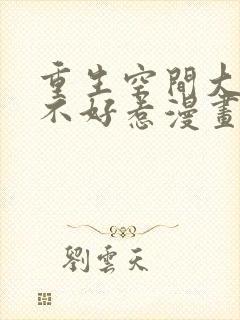 重生空間大
不好惹漫畫
劉雲天